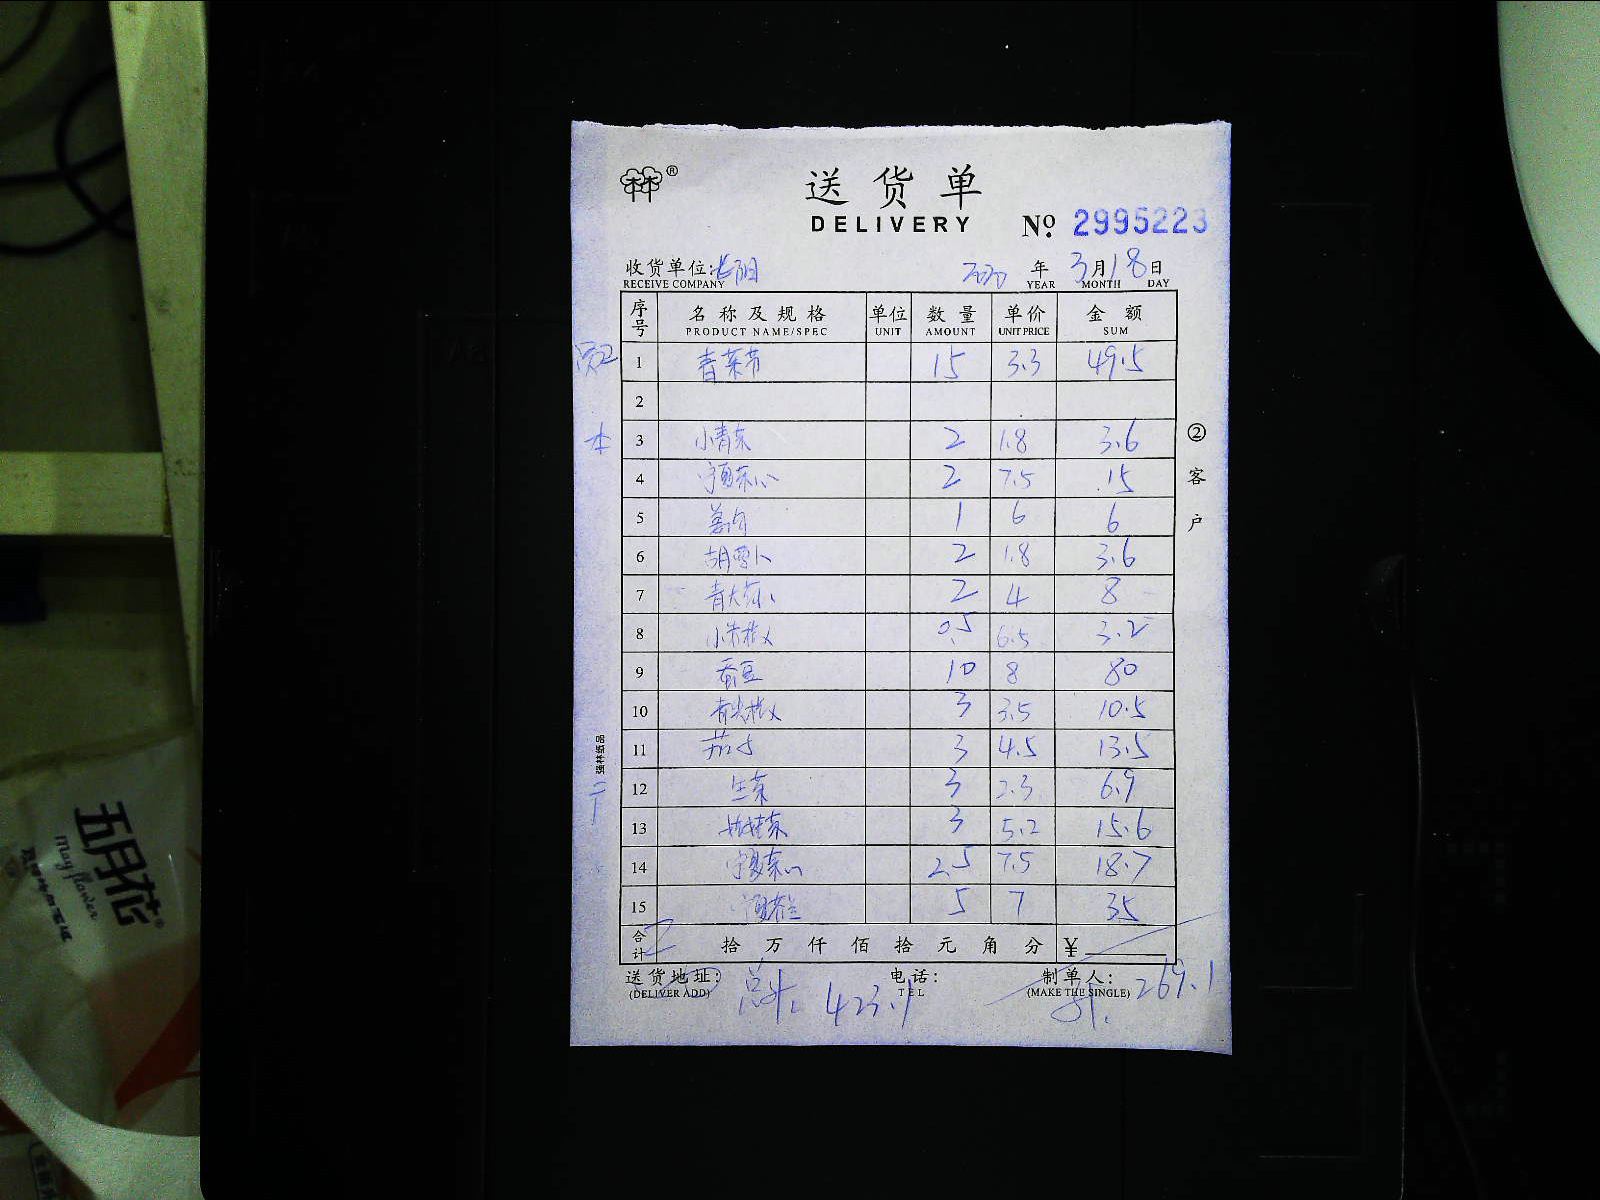 林林®
送货单
DELIVERY
№ 2995223
收货单位:长阳 2020 年 3 月 18 日
RECEIVE COMPANY YEAR MONTH DAY
序号 名称及规格 单位 数量 单价 金额
PRODUCT NAME/SPEC UNIT AMOUNT UNIT PRICE SUM
1 青菜节 15 3.3 49.5
2
本 3 小青菜 2 1.8 3.6
4 宁夏菜心 2 7.5 15
5 姜肉 1 6 6
6 胡萝卜 2 1.8 3.6
7 青大 2 4 8
8 小米椒 0.5 6.5 3.2
9 蚕豆 10 8 80
10 青尖椒 3 3.5 10.5
11 茄子 3 4.5 13.5
12 生菜 3 2.3 6.9
13 娃娃菜 3 5.2 15.6
14 宁夏菜心 2.5 7.5 18.7
15 5 7 35
合计 拾 万 仟 佰 拾 元 角 分 ¥
送货地址: 电话: 制单人:
(DELIVER ADD) TEL (MAKE THE SINGLE)
总计: 423.1 计: 269.1
②客户
强林纸品
五月花®
May flower